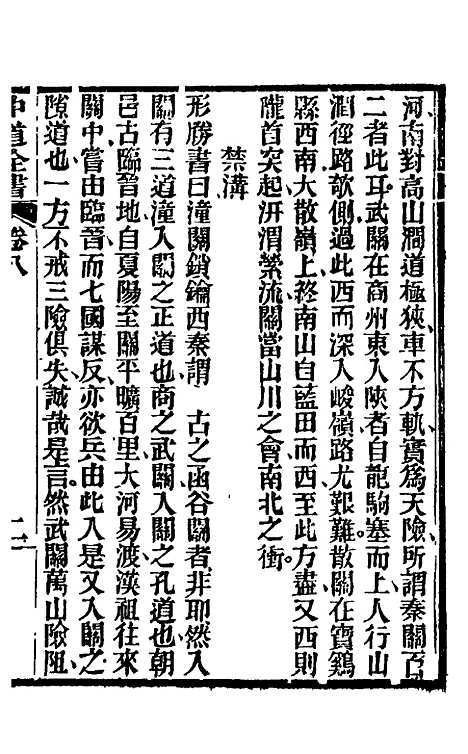 河南對高山澗道極狹車不方軌實爲天險所謂秦關百
二者此耳武關在商州東入陝者自龍駒塞而上人行山
澗徑路欹側過此西而深入峻嶺路尤艱難散關在寶鷄
縣西南大散嶺上終南山自藍田而西至此方盡又西則
隴首突起汧渭縈流關當山川之會南北之衝
禁溝
形勝書曰潼關鎖鑰西秦謂 古之函谷關者非耶然入
關有三道潼入關之正道也商之武關入關之孔道也朝
邑古臨晉地自夏陽至關平曠百里大河易渡漢祖往來
關中嘗由臨晉而七國謀反亦欲兵由此入是又入關之
隙道也一方不戒三險俱失誠哉是言然武關萬山險阻
中道全書 卷八 二